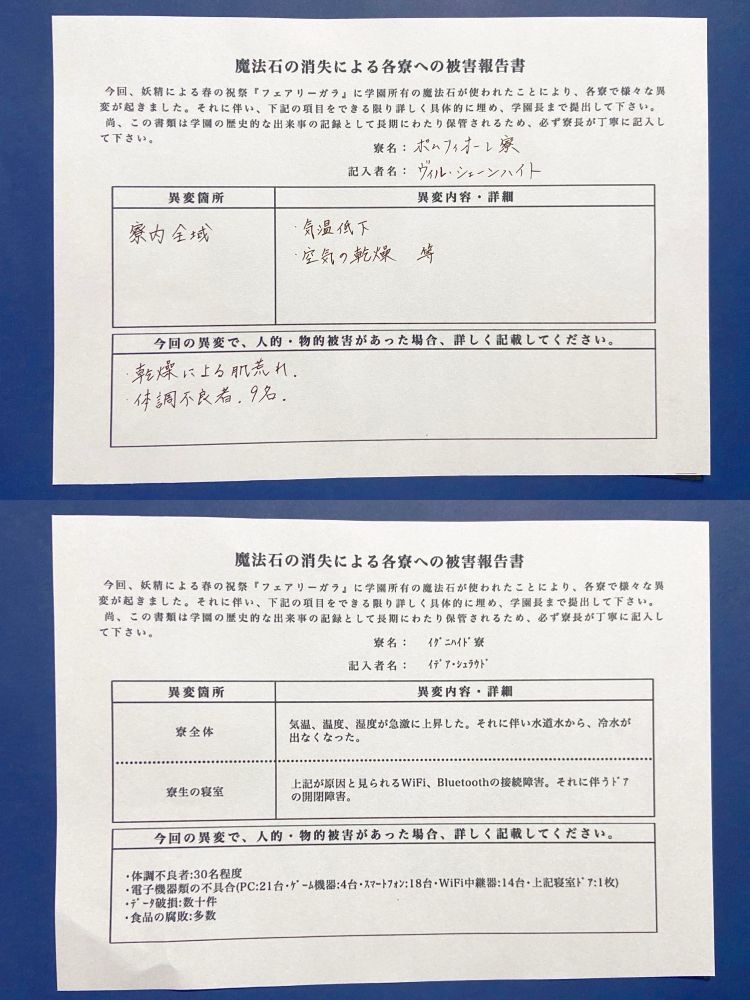 魔法石の消失による各寮への被害報告書
今回、妖精による春の祝祭『フェアリーガラ』に学園所有の魔法石が使われたことにより、各寮で様々な異
変が起きました。それに伴い、下記の項目をできる限り詳しく具体的に埋め、学園長まで提出して下さい。
尚、この書類は学園の歴史的な出来事の記録として長期にわたり保管されるため、必ず寮長が丁寧に記入し
て下さい。
寮名：ポムフィオーレ寮
記入者名：ヴィル・シェーンハイト
異変箇所 異変内容・詳細
寮内全域 ・気温低下
・空気の乾燥 等
今回の異変で、人的・物的被害があった場合、詳しく記載してください。
・乾燥による肌荒れ.
・体調不良者. 9名.
魔法石の消失による各寮への被害報告書
今回、妖精による春の祝祭『フェアリーガラ』に学園所有の魔法石が使われたことにより、各寮で様々な異
変が起きました。それに伴い、下記の項目をできる限り詳しく具体的に埋め、学園長まで提出して下さい。
尚、この書類は学園の歴史的な出来事の記録として長期にわたり保管されるため、必ず寮長が丁寧に記入し
て下さい。
寮名： ｲｸﾞﾆﾊｲﾄﾞ寮
記入者名： ｲﾃﾞｱ・ｼｭﾗｳﾄﾞ
異変箇所 異変内容・詳細
寮全体 気温、温度、湿度が急激に上昇した。それに伴い水道水から、冷水が
出なくなった。
寮生の寝室 上記が原因と見られるWiFi、Bluetoothの接続障害。それに伴うﾄﾞｱ
の開閉障害。
今回の異変で、人的・物的被害があった場合、詳しく記載してください。
・体調不良者:30名程度
・電子機器類の不具合(PC:21台・ｹﾞｰﾑ機器:4台・ｽﾏｰﾄﾌｫﾝ:18台・WiFi中継器:14台・上記寝室ﾄﾞｱ:1枚)
・ﾃﾞｰﾀ破損:数十件
・食品の腐敗:多数